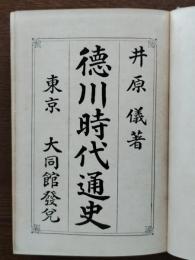 井原 儀著
德川時代通史
東京 大同館發兌